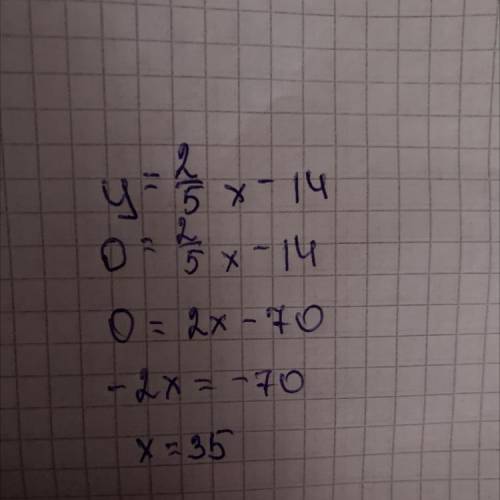 y = 2/5 x - 14
0 = 2/5 x - 14
0 = 2x - 70
-2x = -70
x = 35